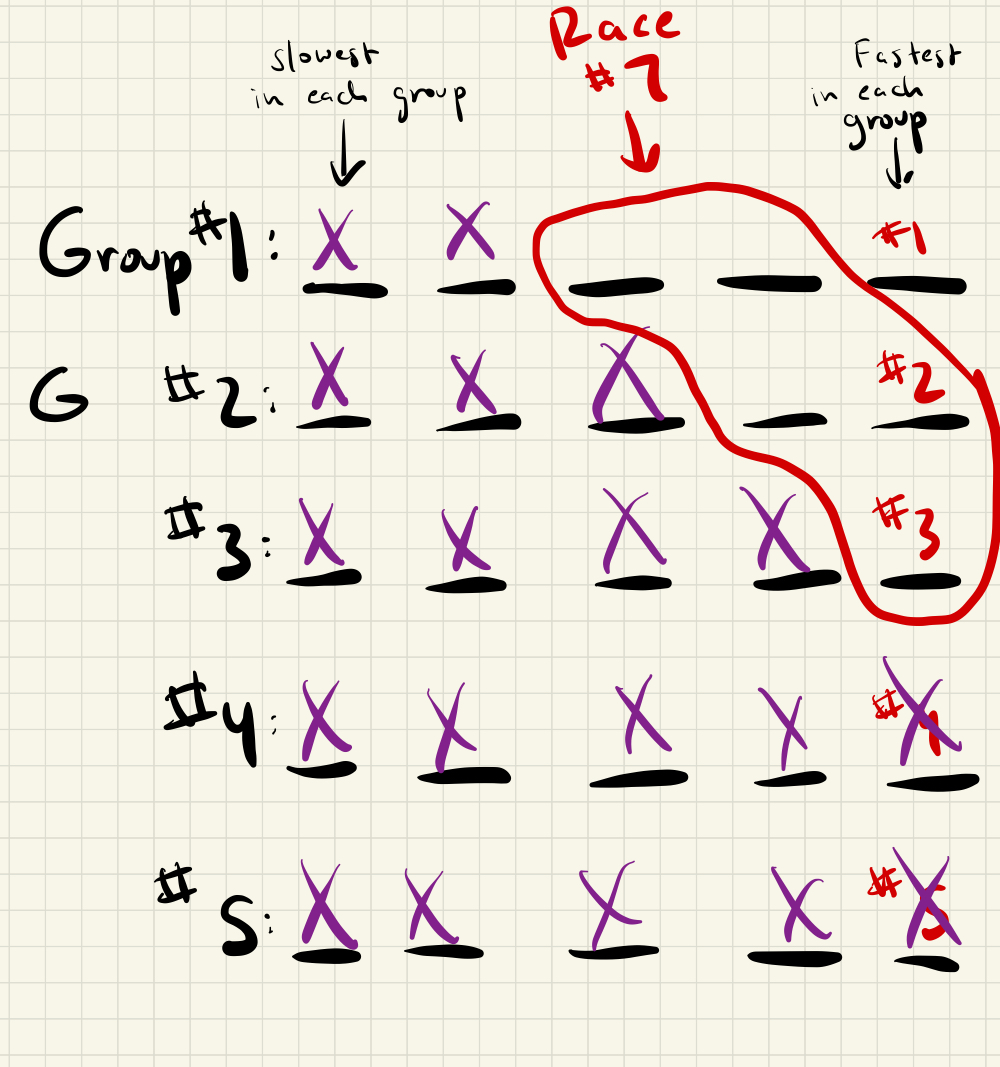 Race
#7
slowest
in each group
Fastest
in each
group
Group #1:
#1
G #2:
#2
#3:
#3
#4:
#4
#5:
#5